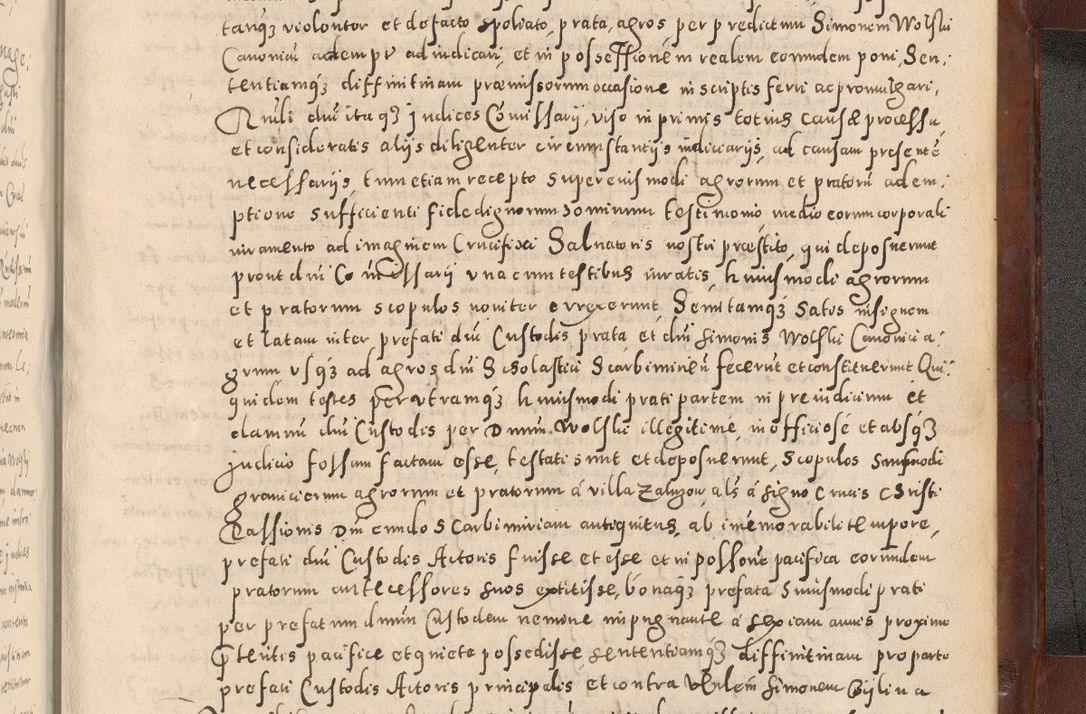 tanqȝ violenter et de facto spoliato, prata, agros, per predictum Simonem Wolski
Canonicũ adempt adiudicari, et in possessionem realem eorundem poni, Sen:
tentiamqȝ diffinitiuam præmissorum occasione in scriptis ferri ac promulgari,
dñi itaqȝ Judices Comissarij, viso in primis totius causæ processu,
et consideratis alijs diligenter circumstantijs iudiciarijs, ad causam presentẽ
necessarijs, tum etiam recepto super eiusmodi agrorum et pratorũ adem:
ptione sufficienti fidedignorum hominum testimonio, medio eorum corporali
iuramento ad imaginem Crucifixi Saluatoris nostri præstito, qui deposuerunt
prout dñi Comissarij vna cum testibus iuratis, huiusmodi agrorum
et pratorum scopulos noviter errexerunt, Semitamqȝ satis insignem
et latam inter prefati dñi Custodis prata, et dñi Simonis Wolski Canonici a:
grum vsqȝ ad agros dñi Scholastici Scarbimirieñ fecerũt et constituerunt Qui:
quidem testes per vtramqȝ huiusmodi prati partem in preiudicium et
damnũ dñi Custodis per Dnum Wolski illegitime, in officiosé et absqȝ
judicio fossam factam esse, testati sunt et deposuerunt, Scopulos huiusmodi
graniciorum agrorum et pratorum á villa Zaluzow als á signo Crucis Christi
Passionis Dñi eundo Scarbimiriam antiquitus, ab immemorabili tempore,
prefati dñi Custodis Actoris fuisse et esse et in possone pacifica eorundem
pratorum antecessores suos extitisse, bonaqȝ prefata huiusmodi prati
per prefatum dnum Custodem nemine impugnante á sexiam annis proxime
pteritis pacifice et quiete possedisse, sententiamqȝ diffinitiuam pro parte
prefati Custodis Actoris principalis et contra vñlem Simonem